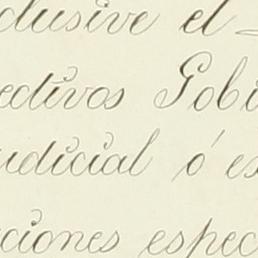 clusive el
ectivos Gobi
udicial ó es
ciones espec